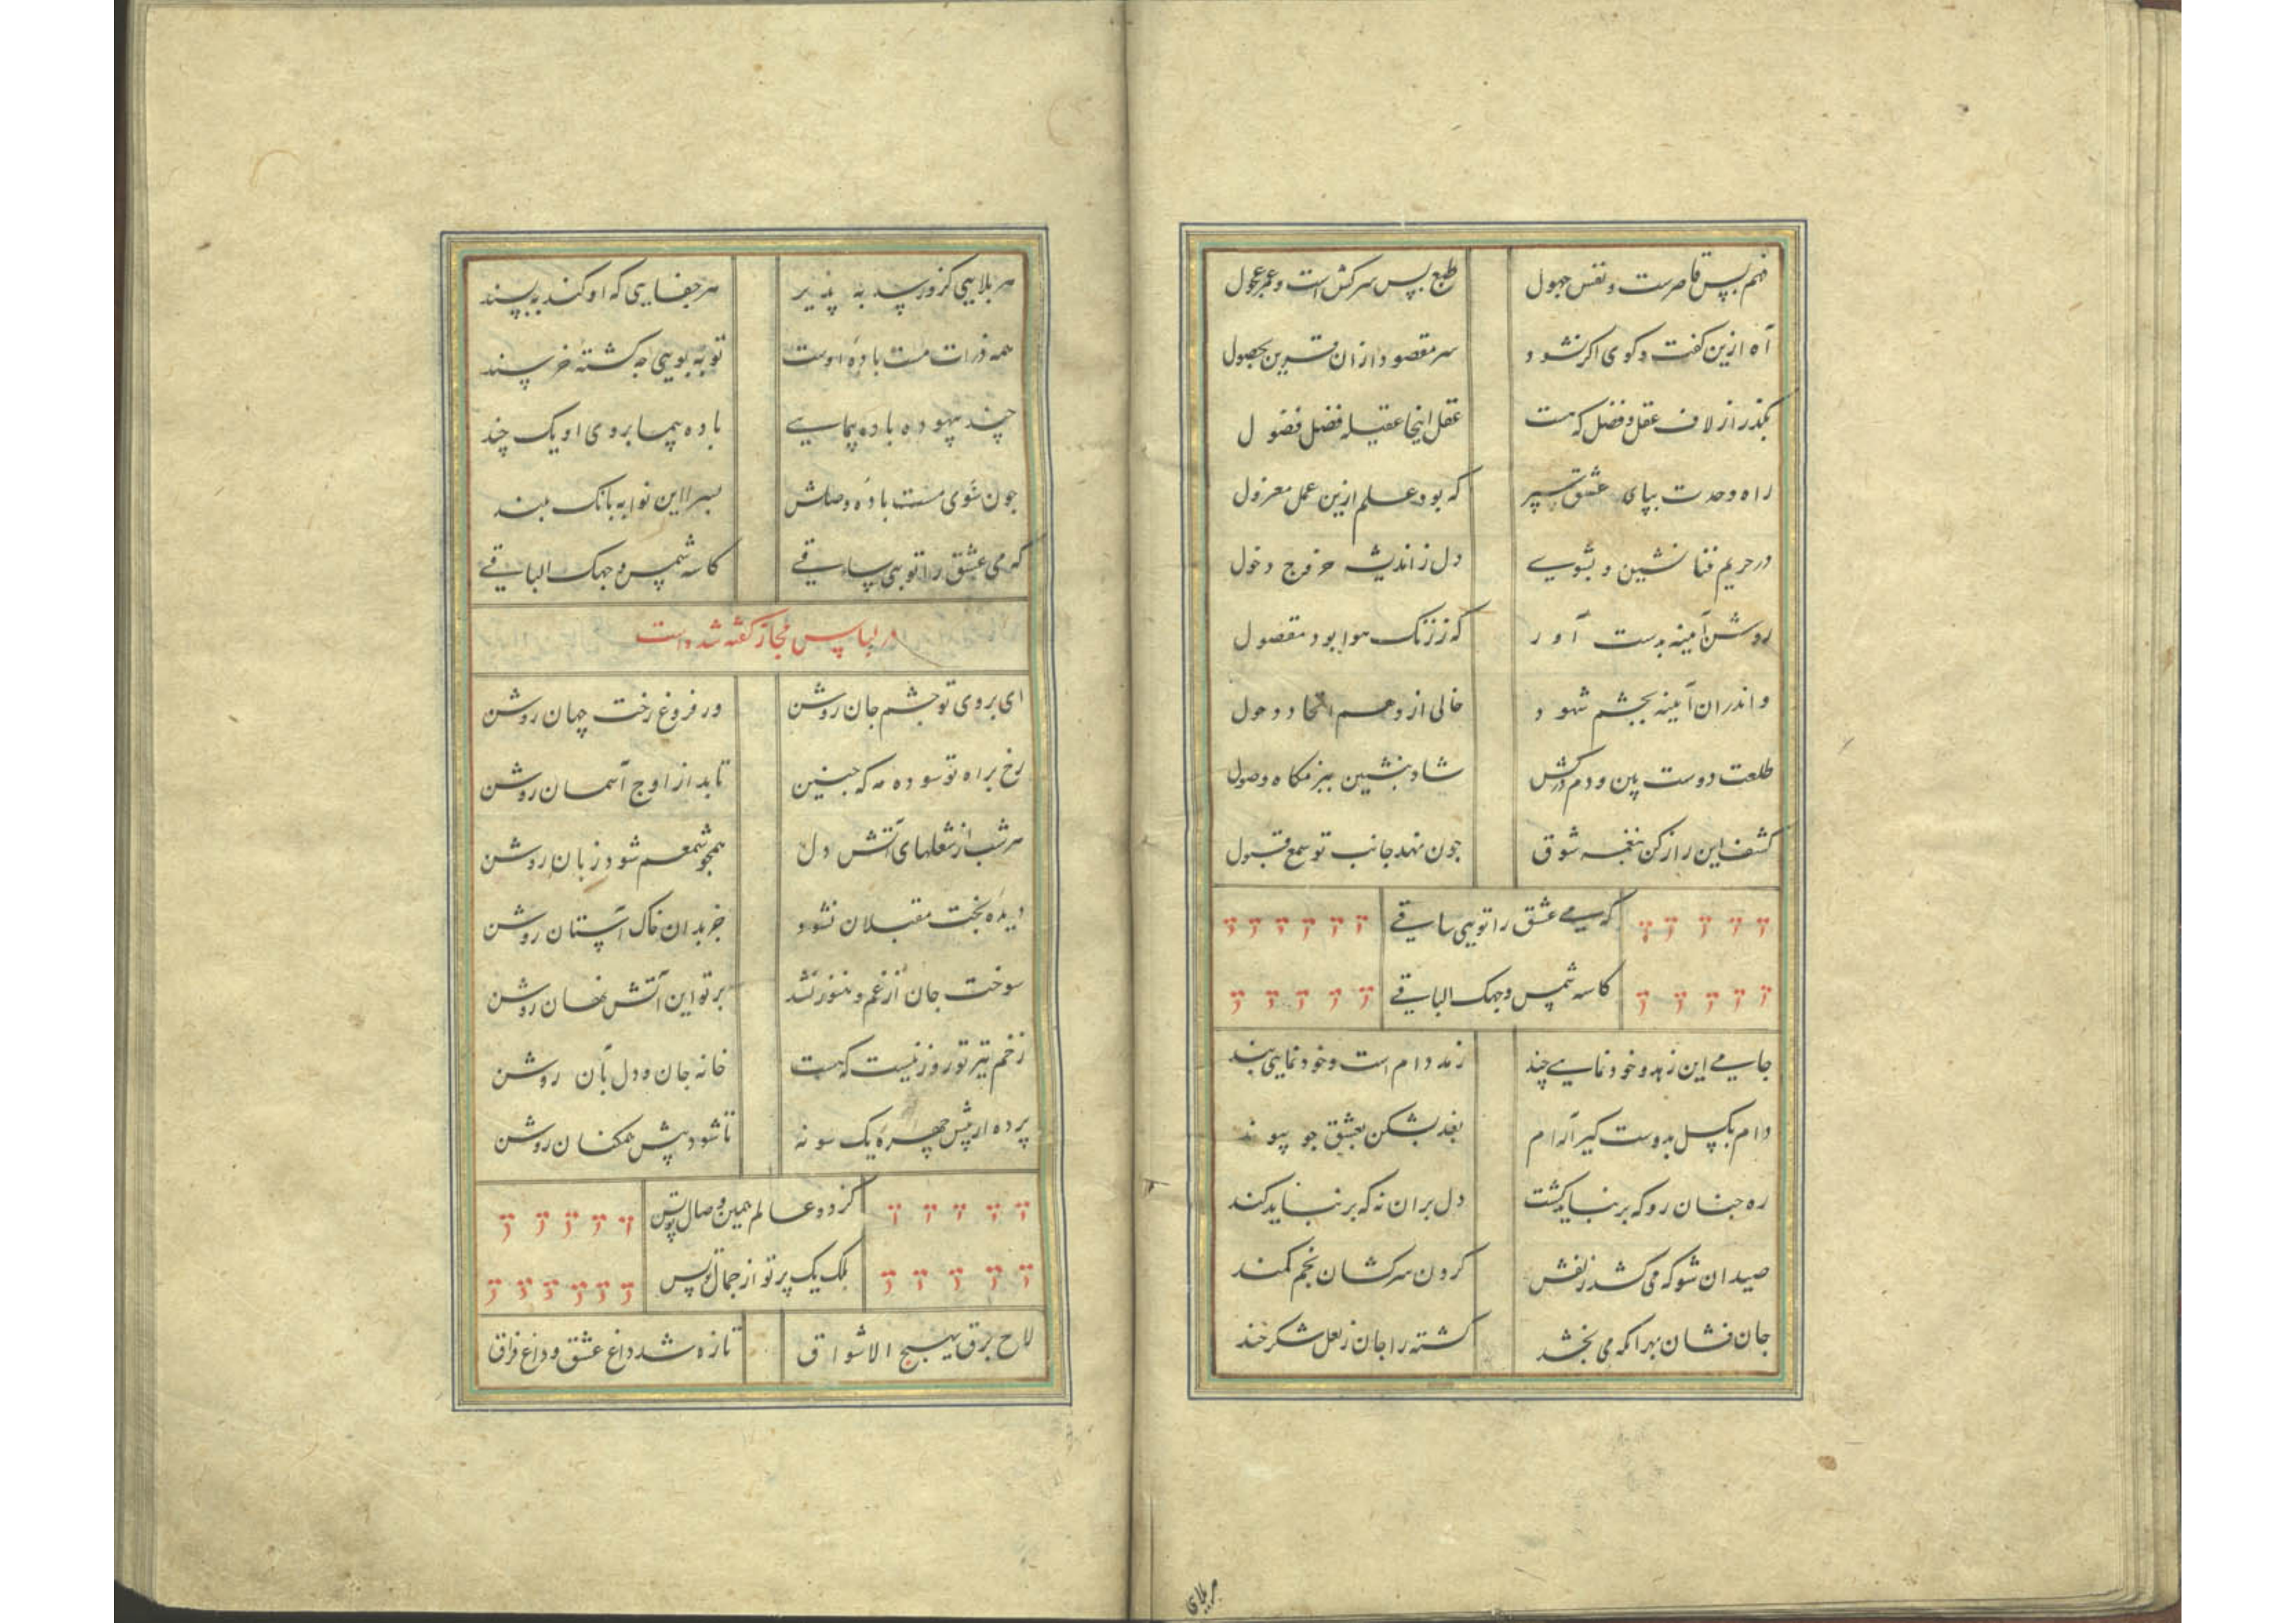 فهم بس قاصرست و نفس جهول طبع بس سرکش است و عمر عجول
آه ازین کفت و کوی اکر نشود سر مقصود ازان قرین بحصول
بکذر از لاف عقل و فضل که هست عقل اینجا عقیله فضل فضول
راه وحدت بپای عشق سپر که بود علم ازین عمل معزول
در حریم فنا نشین و بشوی دل ز اندیشه خروج دخول
روشن آینه بدست آور که ز زنک هوا بود مصقول
واندران آینه بچشم شهود خالی از وهم اتحاد و حلول
طلعت دوست بین و دم درکش شاد بنشین ببزمکاه وصول
کشف این راز کن بنغمه شوق جون نهد جانب تو سمع قبول
که می عشق را تویی ساقی
کاسه شمس وجهک الباقی
جامی این زهد و خود نمایی چند زهد دام است و خود نمایی بند
دام بکسل بدوست کیر آرام بند بشکن بعشق جو پیوند
ره جنان رو که بر نباید کشت دل بران نه که بر نباید کند
صید ان شو که می کشد زلفش کردن سرکشان بخم کمند
جان فشان بهر انکه می بخشد کشته را جان ز لعل شکر خند
هر بلایی کزو رسد به پذیر هر جفایی که او کند به پسند
همه ذرات مست باده اوست تو به بویی جه کشته خرسند
چند بیهوده باده پیمایی باده پیما بروی او یک چند
جون شوی مست باده وصلش بسرا این نوا به بانک بلند
که می عشق را تویی ساقی کاسه شمس وجهک الباقی
در لباس مجاز کفته شده است
ای بروی تو جشم جان روشن ور فروغ رخت جهان روشن
رخ براه تو سوده مه که جنین تابد از اوج آسمان روشن
هر شب از شعلهای آتش دل همجو شمعم شود زبان روشن
دیده بخت مقبلان نشود جز بدان خاک آستان روشن
سوخت جان از غم و هنوز نشد بر تو این آتش نهان روشن
زخم تیر تو روزنیست که هست خانه جان و دل بآن روشن
پرده از پیش چهره یک سو نه تا شود پیش همکنان روشن
کز دو عالم همین وصال تو بس
بلک یک پرتو از جمال تو بس
لاح برق یهیج الاشواق تازه شد داغ عشق و داغ فراق